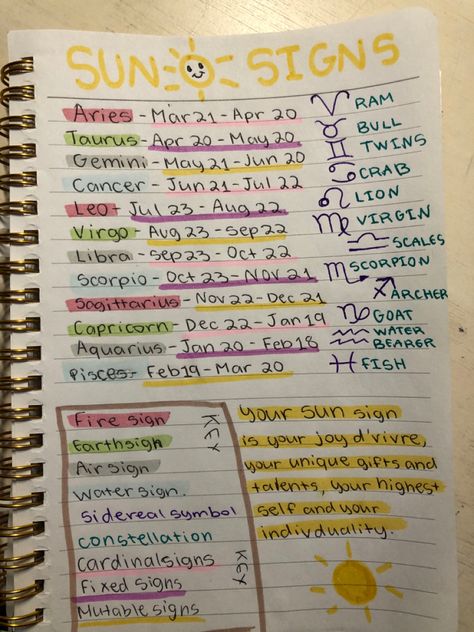 SUN SIGNS
Aries - Mar 21 - Apr 20
RAM
Taurus - Apr 20 - May 20
BULL
Gemini - May 21 - Jun 20
TWINS
Cancer - Jun 21 - Jul 22
CRAB
Leo - Jul 23 - Aug 22
LION
Virgo - Aug 23 - Sep 22
VIRGIN
Libra - Sep 23 - Oct 22
SCALES
Scorpio - Oct 23 - Nov 21
SCORPION
Sagittarius - Nov 22 - Dec 21
ARCHER
Capricorn - Dec 22 - Jan 19
GOAT
Aquarius - Jan 20 - Feb 18
WATER
BEARER
Pisces - Feb 19 - Mar 20
FISH
Fire sign
Earth sign
Air sign
Water sign.
sidereal symbol
constellation
Cardinal signs
Fixed signs
Mutable signs
KEY
KEY
your sun sign
is your joy d'vivre,
your unique gifts and
talents, your highest
self and your
indivduality.